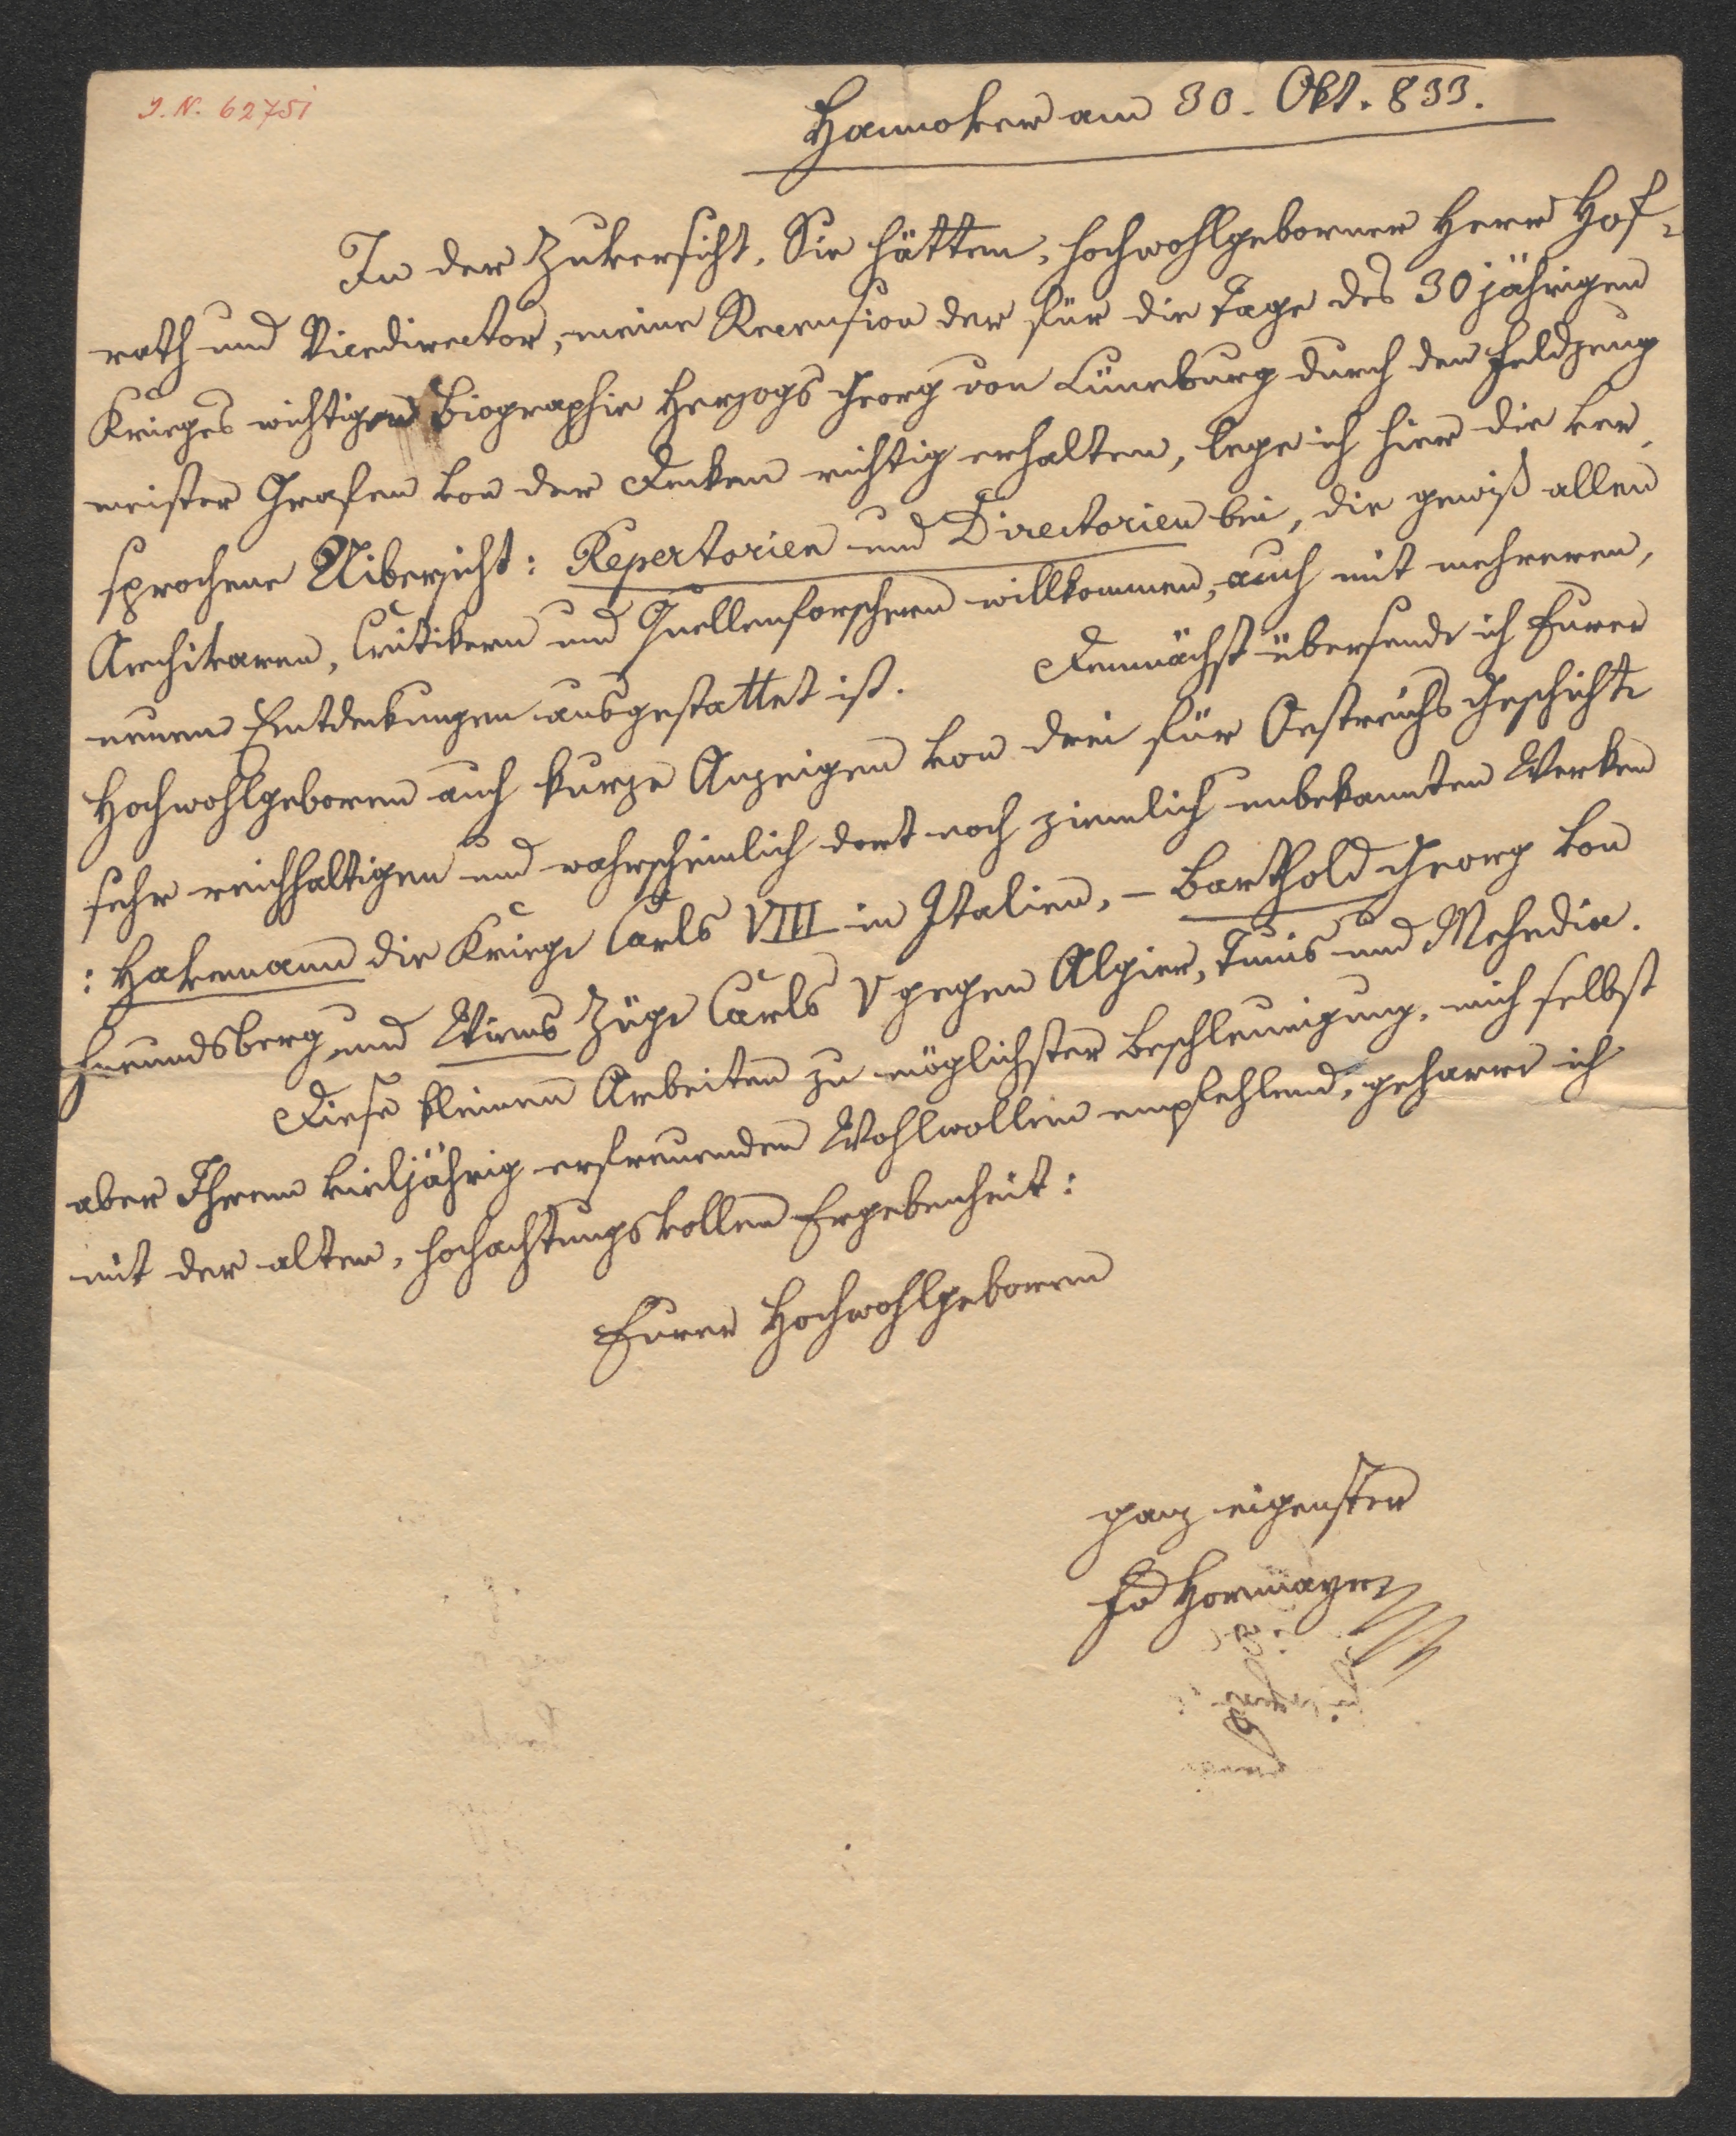 I. N. 62751
Hannover am 30. Okt. 833.
In der Zuversicht, Sie hätten, hochwohlgeborner Herr Hof-
rath und Vicedirector, meine Recension der für die Tage des 30jährigen
Krieges wichtigen Biographie Herzogs Georg von Lüneburg durch den Feldzeug
meister Grafen von der Decken richtig erhalten, lege ich hier die ver
sprochene Uibersicht: Repertorien und Directorien bei, die gewiß allen
Archivaren, Critikern und Quellenforschern willkommen, auch mit mehreren,
neuen Entdeckungen ausgestattet ist. Demnächst übersende ich Eurer
Hochwohlgeboren auch kurze Anzeigen von drei für Oestreichs Geschichte
sehr reichhaltigen und wahrscheinlich dort noch ziemlich unbekannten Werken
: Havemann die Kriege Carls VIII in Italien, – Barthold Georg von
Freundsberg und Wirms Züge Carls V gegen Algier, Tunis und Mehedia.
Diese kleinen Arbeiten zu möglichster Beschleunigung, mich selbst
aber Ihrem vieljährig erfreuenden Wohlwollen empfehlend, geharre ich
mit der alten, hochachtungsvollen Ergebenheit:
Eurer Hochwohlgeboren
ganz eigenster
Hormayr